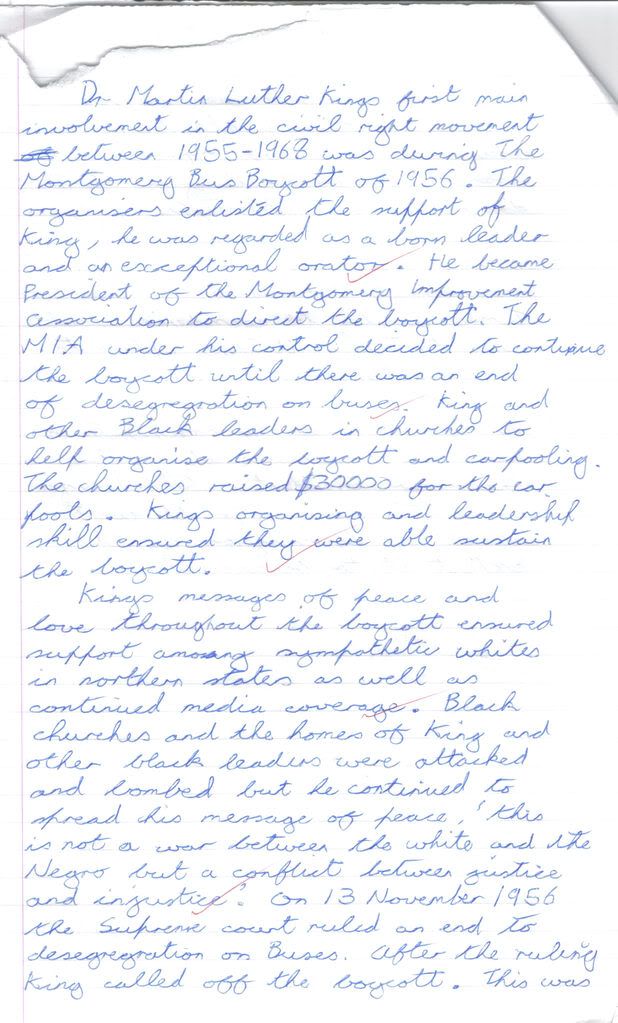 Dr Martin Luther Kings first main
involvement in the civil right movement
between 1955-1968 was during The
Montgomery Bus Boycott of 1956. The
organisers enlisted the support of
King, he was regarded as a born leader
and an exceptional orator. He became
President of the Montgomery Improvement
association to direct the boycott. The
MIA under his control decided to continue
the boycott until there was an end
of desegregration on buses. King and
other Black leaders in churches to
help organise the boycott and carpooling.
The churches raised $30000 for the car
pools. Kings organising and leadership
skill ensured they were able sustain
the boycott.
Kings messages of peace and
love throughout the boycott ensured
support among sympathetic whites
in northern states as well as
continued media coverage. Black
churches and the homes of King and
other black leaders were attacked
and bombed but he continued to
spread his message of peace, 'this
is not a war between the white and the
Negro but a conflict between justice
and injustice'. On 13 November 1956
the Supreme court ruled an end to
desegregration on Buses. After the ruling
King called off the boycott. This was